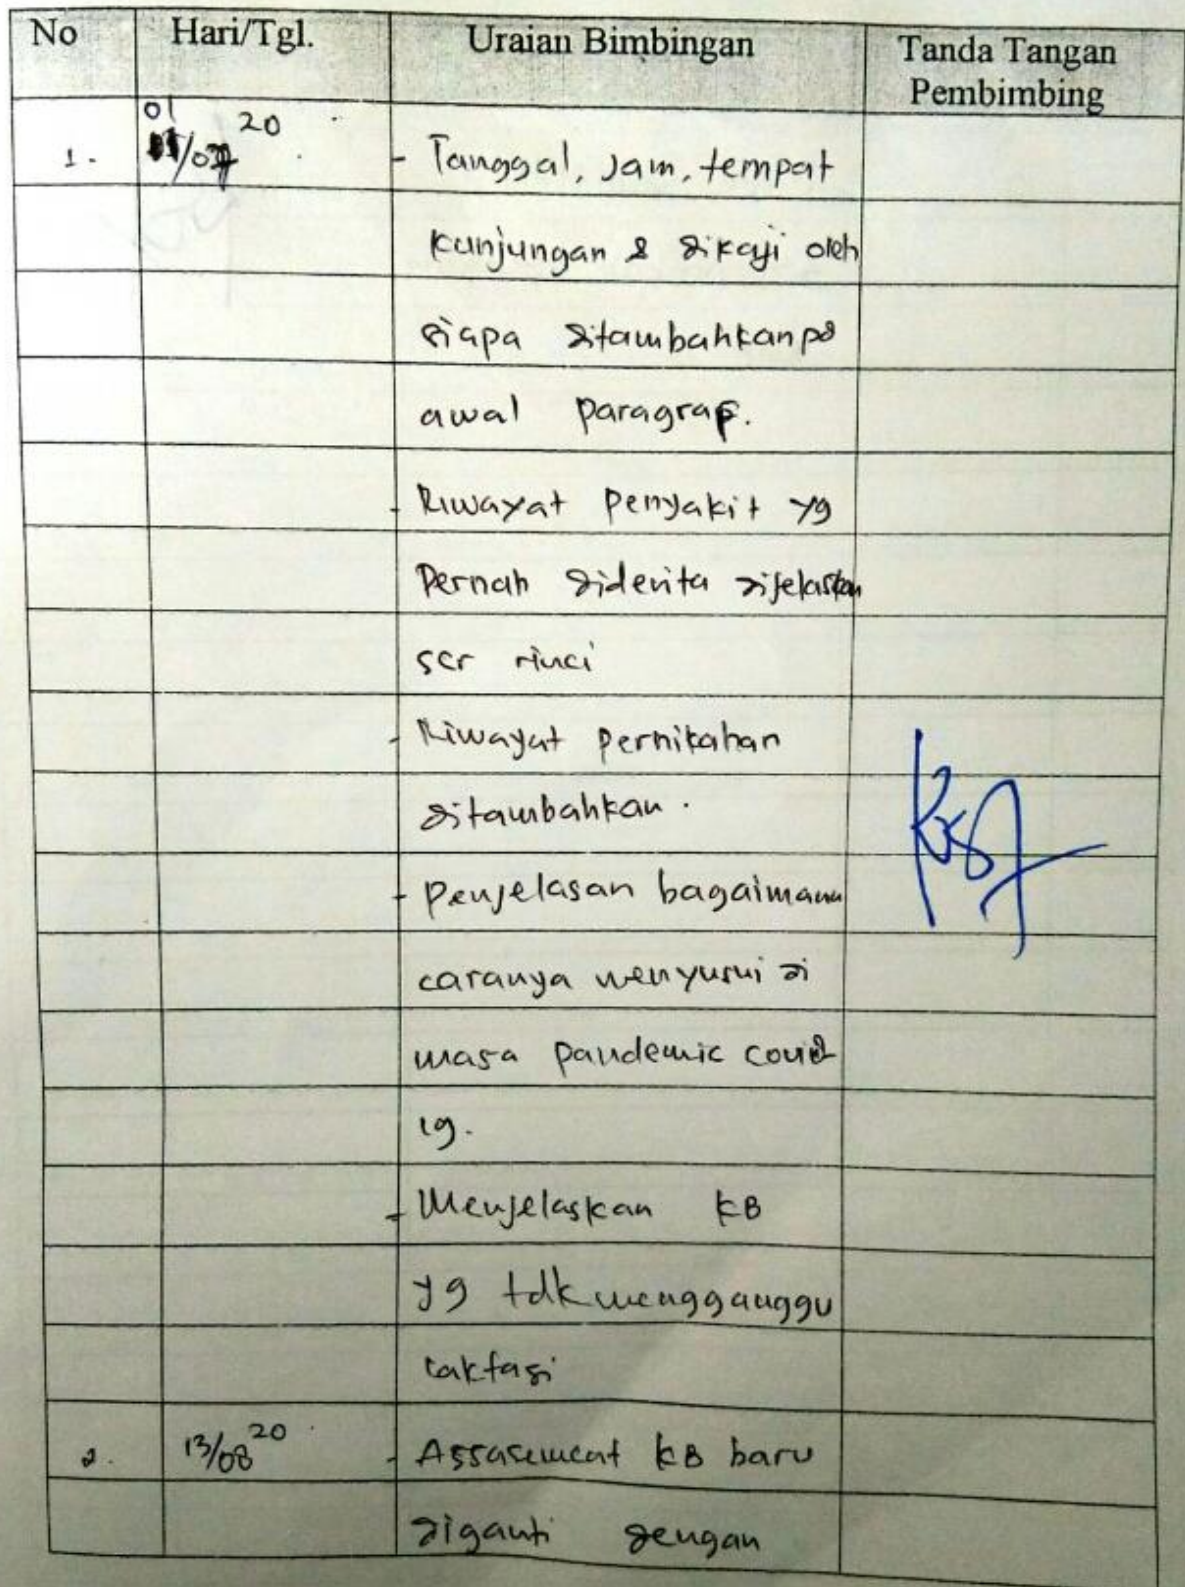 No Hari/Tgl. Uraian Bimbingan Tanda Tangan Pembimbing
1. 01/07 20 - Tanggal, Jam, tempat
kunjungan & dikaji oleh
siapa ditambahkan pd
awal paragraf.
- Riwayat Penyakit yg
Pernah diderita dijelaskan
scr rinci
- Riwayat pernikahan
ditambahkan.
- Penjelasan bagaimana
caranya menyusui di
masa pandemic covid
19.
- Menjelaskan KB
yg tdk mengganggu
laktasi
2. 13/08 20 - Assasement KB baru
diganti dengan